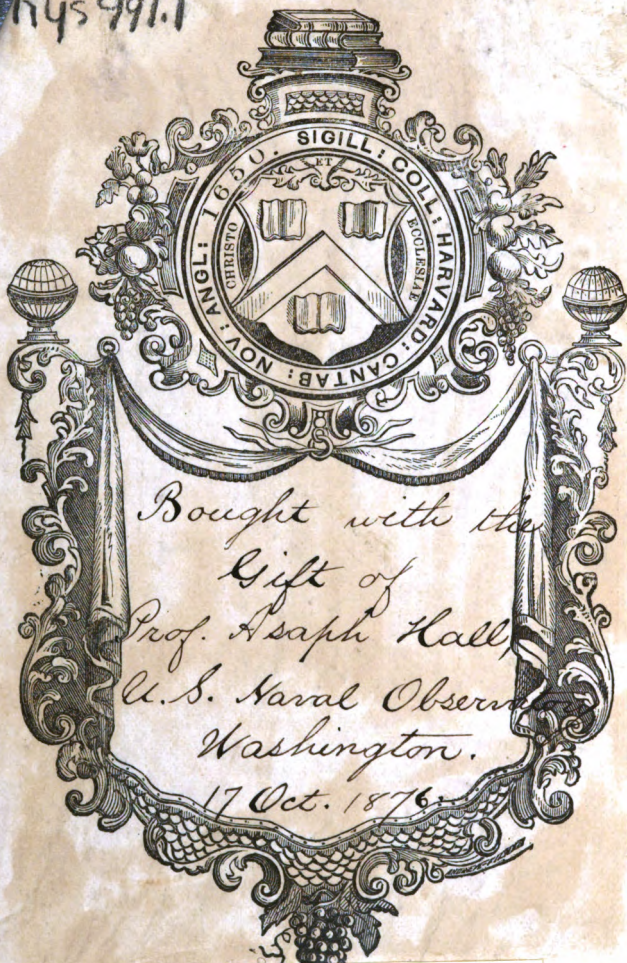 1650. SIGILL: COLL: HARVARD: CANTAB: NOV: ANGL:
ET
CHRISTO
ECCLESIAE
Bought with the
Gift of
Prof. Asaph Hall,
U.S. Naval Observatory
Washington.
17 Oct. 1876.